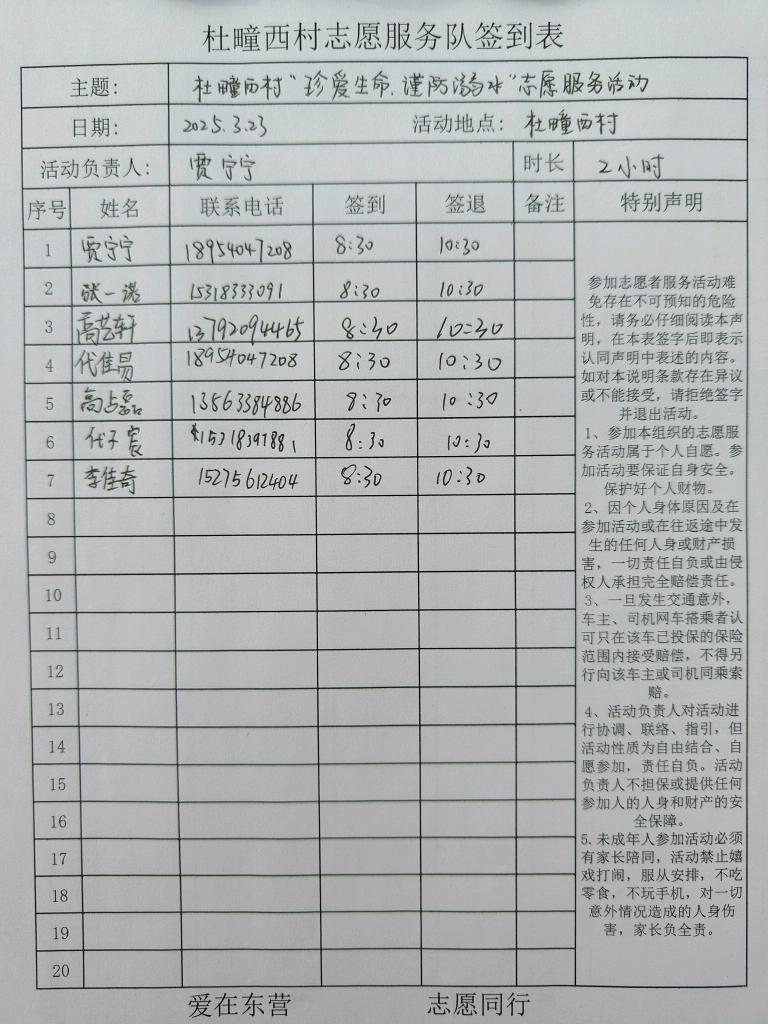 杜疃西村志愿服务队签到表
主题： 杜疃西村“珍爱生命、谨防溺水”志愿服务活动
日期： 2025.3.23 活动地点： 杜疃西村
活动负责人： 贾宁宁 时长 2小时
序号 姓名 联系电话 签到 签退 备注 特别声明
1 贾宁宁 18954047208 8:30 10:30
2 张一诺 15318333091 8:30 10:30
3 高艺轩 13792094465 8:30 10:30
4 代佳易 18954047208 8:30 10:30
5 高占磊 13563384886 8:30 10:30
6 代子宸 15318391881 8:30 10:30
7 李佳奇 15275612404 8:30 10:30
8
9
10
11
12
13
14
15
16
17
18
19
20
参加志愿者服务活动难
免存在不可预知的危险
性，请务必仔细阅读本声
明，在本表签字后即表示
认同声明中表述的内容。
如对本说明条款存在异议
或不能接受，请拒绝签字
并退出活动。
1、参加本组织的志愿服
务活动属于个人自愿。参
加活动要保证自身安全。
保护好个人财物。
2、因个人身体原因及在
参加活动或在往返途中发
生的任何人身或财产损
害，一切责任自负或由侵
权人承担完全赔偿责任。
3、一旦发生交通意外，
车主、司机网车搭乘者认
可只在该车已投保的保险
范围内接受赔偿，不得另
行向该车主或司机同乘索
赔。
4、活动负责人对活动进
行协调、联络、指引，但
活动性质为自由结合、自
愿参加，责任自负。活动
负责人不担保或提供任何
参加人的人身和财产的安
全保障。
5.未成年人参加活动必须
有家长陪同，活动禁止嬉
戏打闹，服从安排，不吃
零食，不玩手机，对一切
意外情况造成的人身伤
害，家长负全责。
爱在东营 志愿同行